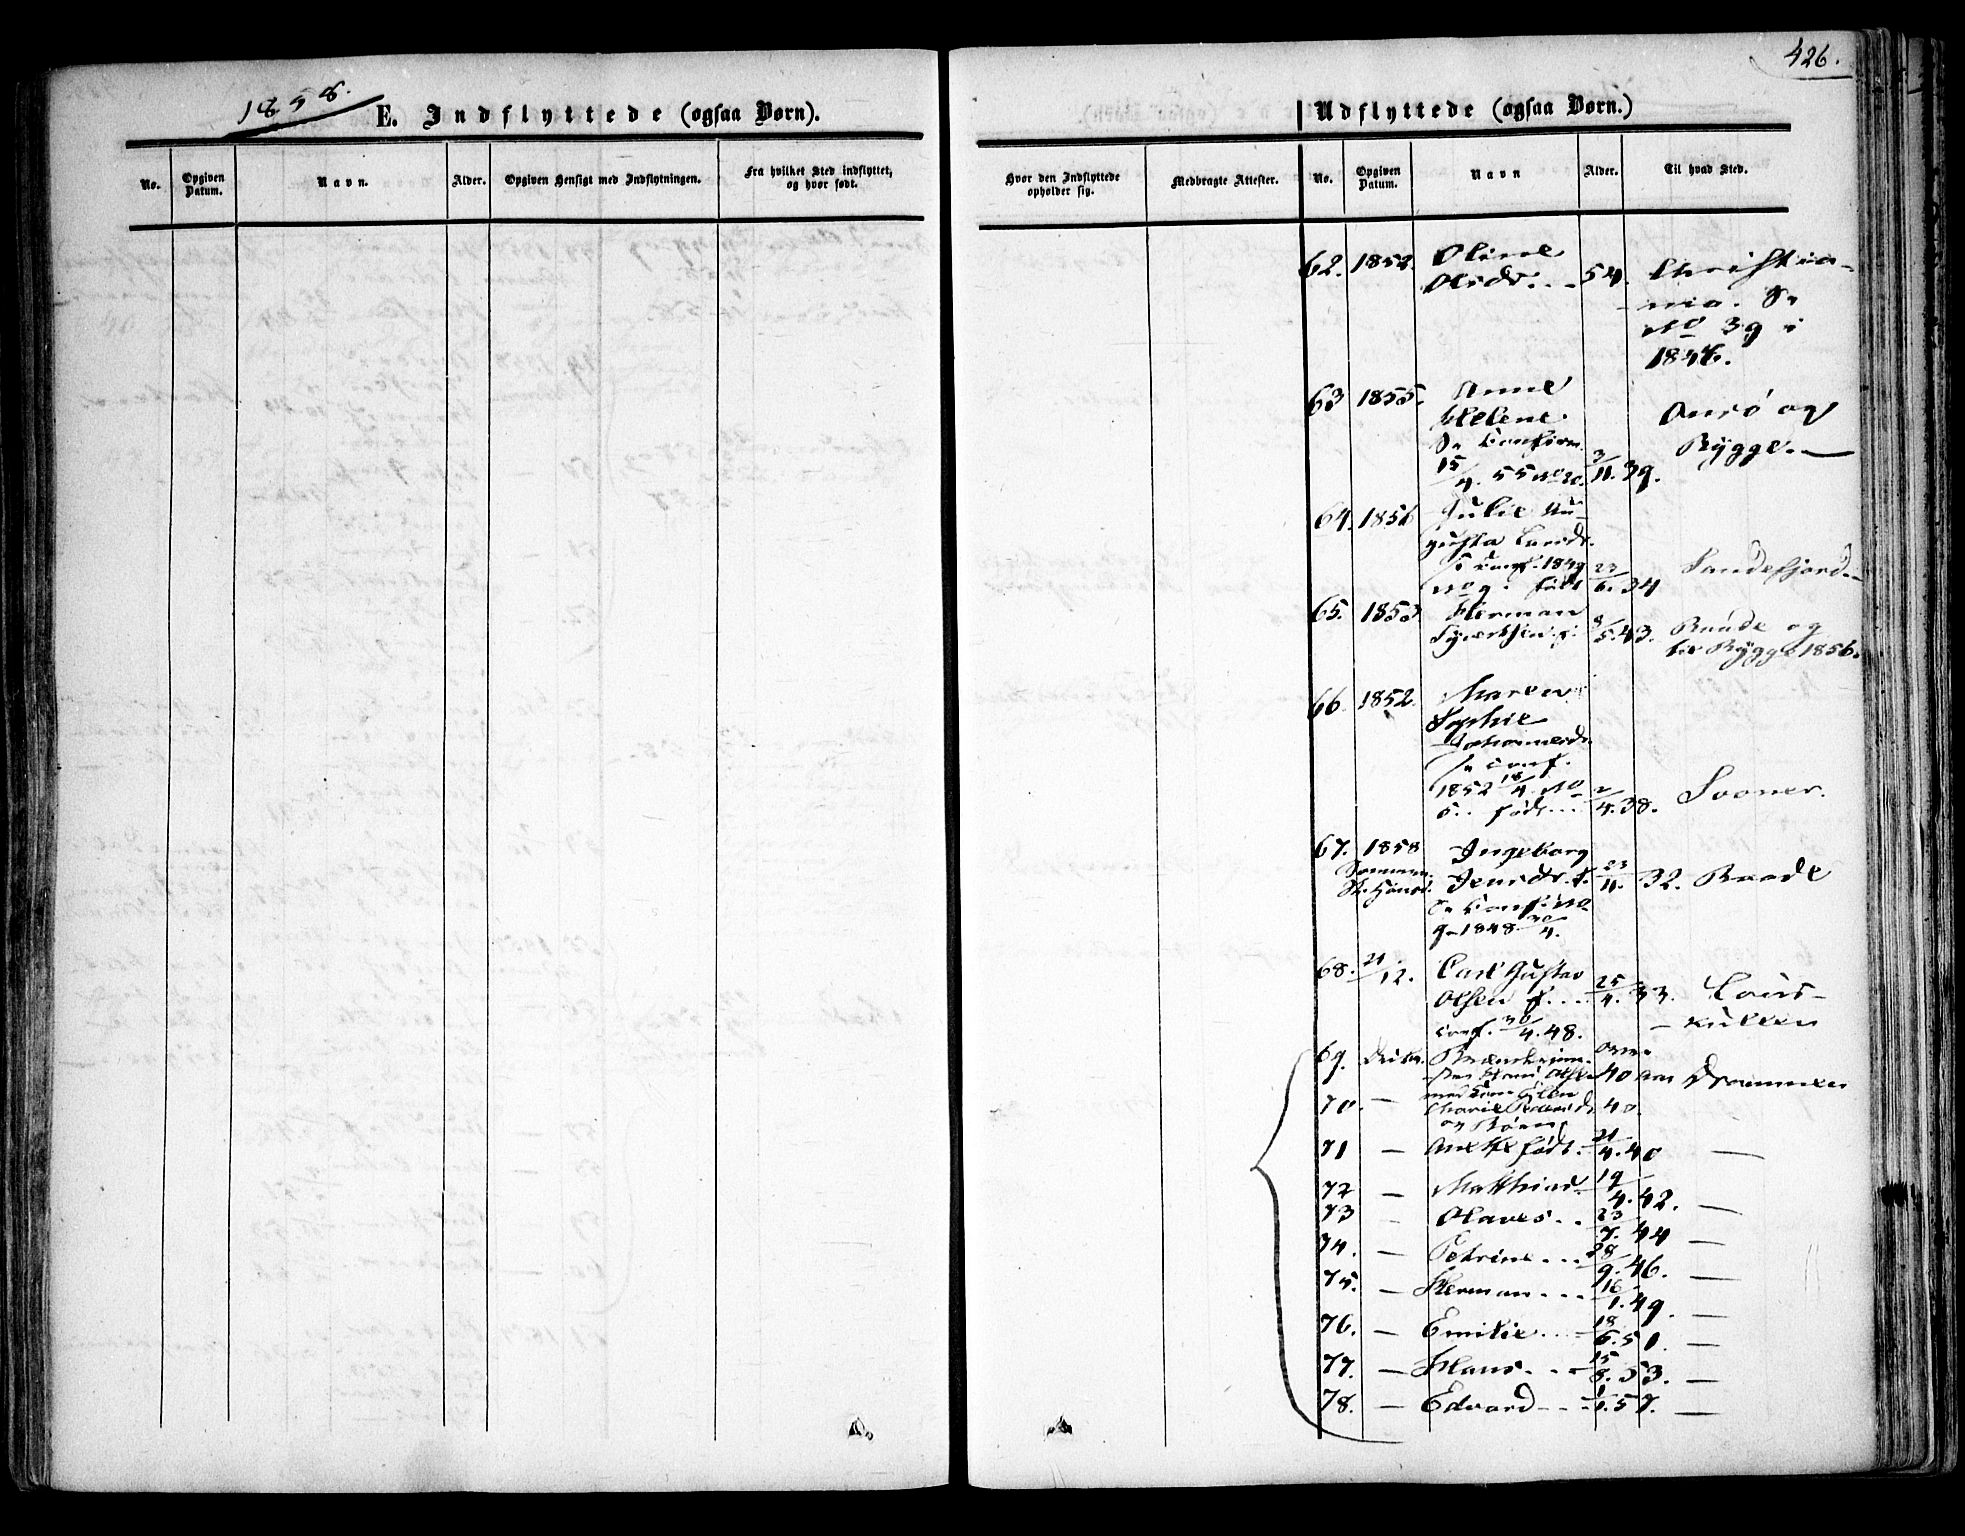 1858.
426.
E. Indflyttede (ogsaa Børn).
Udflyttede (ogsaa Børn.)
No. Opgiven Datum. Navn. Alder. Opgiven Hensigt med Indflytningen. Fra hvilket Sted indflyttet, og hvor født.
Hvor den Indflyttede opholder sig. Medbragte Attester. No. Opgiven Datum. Navn Alder. Til hvad Sted.
62. 1852. Oline
Olsdr. 54. Christia-
nia. Se
No 39 i
63 1855. Anne
Helene Onsø og
Se Confirm Rygge.
15/4. 55 No 20. 3/11. 39.
64. 1856 Julie Au-
gusta Larsdr.
Se Conf. 1849
No 9. født 23/6. 34 Sandefjord
65. 1853 Herman
Syvertsen f. 5. 43. Raade og
til Rygge 1856.
66. 1852. Maren
Sophie
Johannesdr.
Se Conf.
1852 18/4. No
5. født 2/4. 38. Sooner.
67. 1858 Ingeborg
Jensdr. f. 23/11. 32. Raade
Se Conf. No
9 1848 30/4.
68. 21/12. Carl Gustav
Olsen f. 25/4. 33.
Conf. 30/4. 48.
69. Hans Olsen 40 aar Drammen
70. — Marie Pedersdr. 40.
og Børn
71 — Anette født 21/4. 40 —
72 — Matthias 19/4. 42. —
73 — Olaves 23/7. 44 —
74. — Petrine 28/9. 46. —
75. — Herman 16/1. 49. —
76. — Emilie 18/6. 51. —
77. — Hans 15/8. 53. —
78. — Edvard 1/1. 57. —